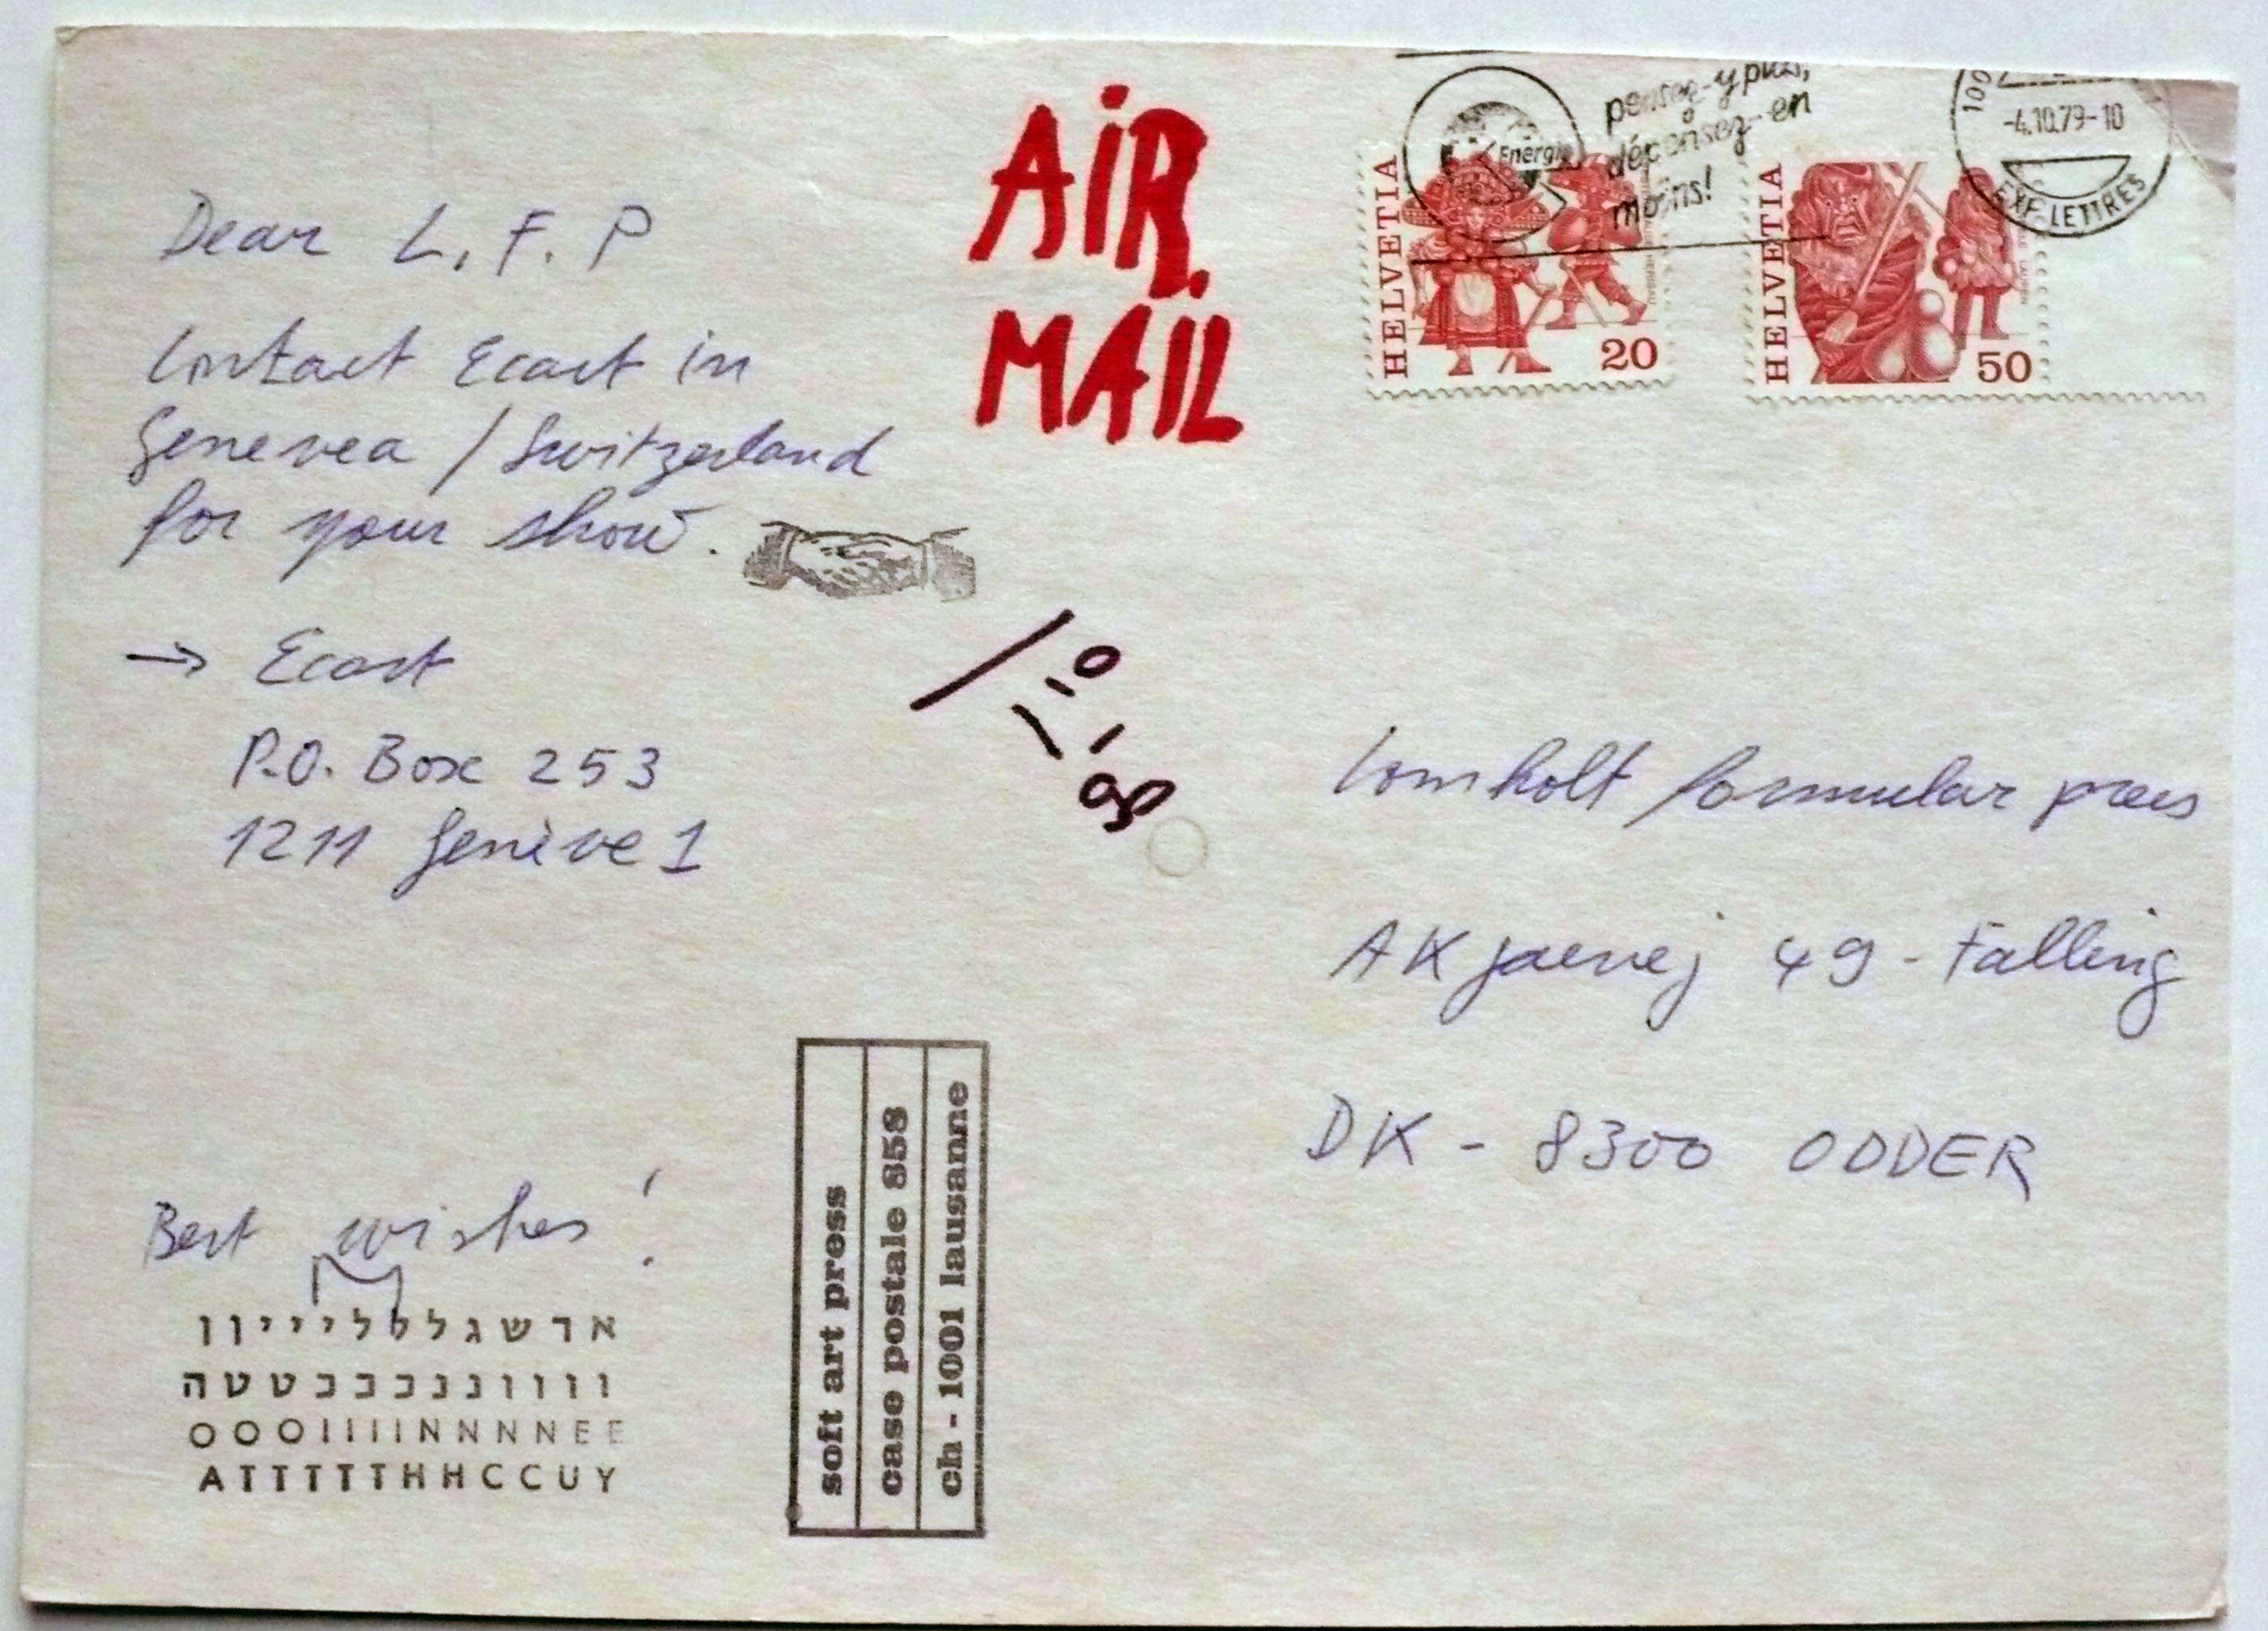 AIR
MAIL
pensez-y plus,
dépensez-en
moins!
Energie
100
-4.10.79-10
EXP. LETTRES
HELVETIA
20
HELVETIA
50
Dear L. F. P
Contact Ecart in
Genevea / Switzerland
for your show.
→ Ecart
P.O. Box 253
1211 Genève 1
Lomholt formular press
AKjaervej 49 - Falling
DK - 8300 ODDER
Best wishes!
ארשגללליייון
ווווננכככטטה
OOOIIIINNNNEE
ATTTTTHHCCUY
soft art press
case postale 858
ch - 1001 lausanne